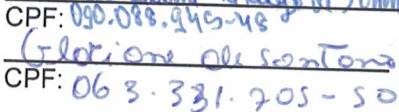 CPF: 090.088.949-48
de Santana
CPF: 063.331.705-50